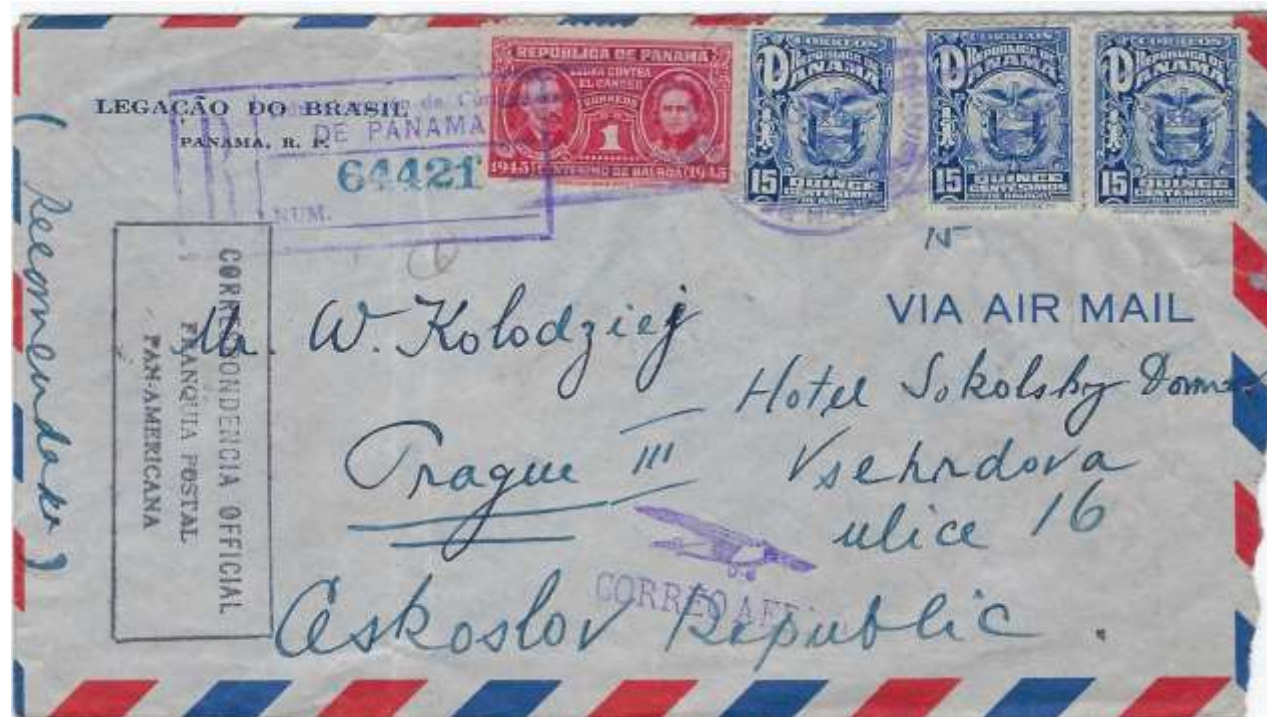 LEGAÇÃO DO BRASIL
PANAMA, R. P.
DE PANAMA
64421
NUM.
REPUBLICA DE PANAMA
LUCHA CONTRA
EL CANCER
CORREOS
1
1945 CENTESIMO DE BALBOA 1945
CORREOS
REPUBLICA DE
PANAMA
15 QUINCE
CENTESIMOS
DE BALBOA
CORREOS
REPUBLICA DE
PANAMA
15 QUINCE
CENTESIMOS
DE BALBOA
CORREOS
REPUBLICA DE
PANAMA
15 QUINCE
CENTESIMOS
DE BALBOA
(Recomendada)
CORRESPONDENCIA OFFICIAL
FRANQUIA POSTAL
PAN-AMERICANA
VIA AIR MAIL
Mr. W. Kolodziej
Hotel Sokolsky
Prague III
Vsehrdova
ulice 16
CORREO
Ceskoslov Republic.